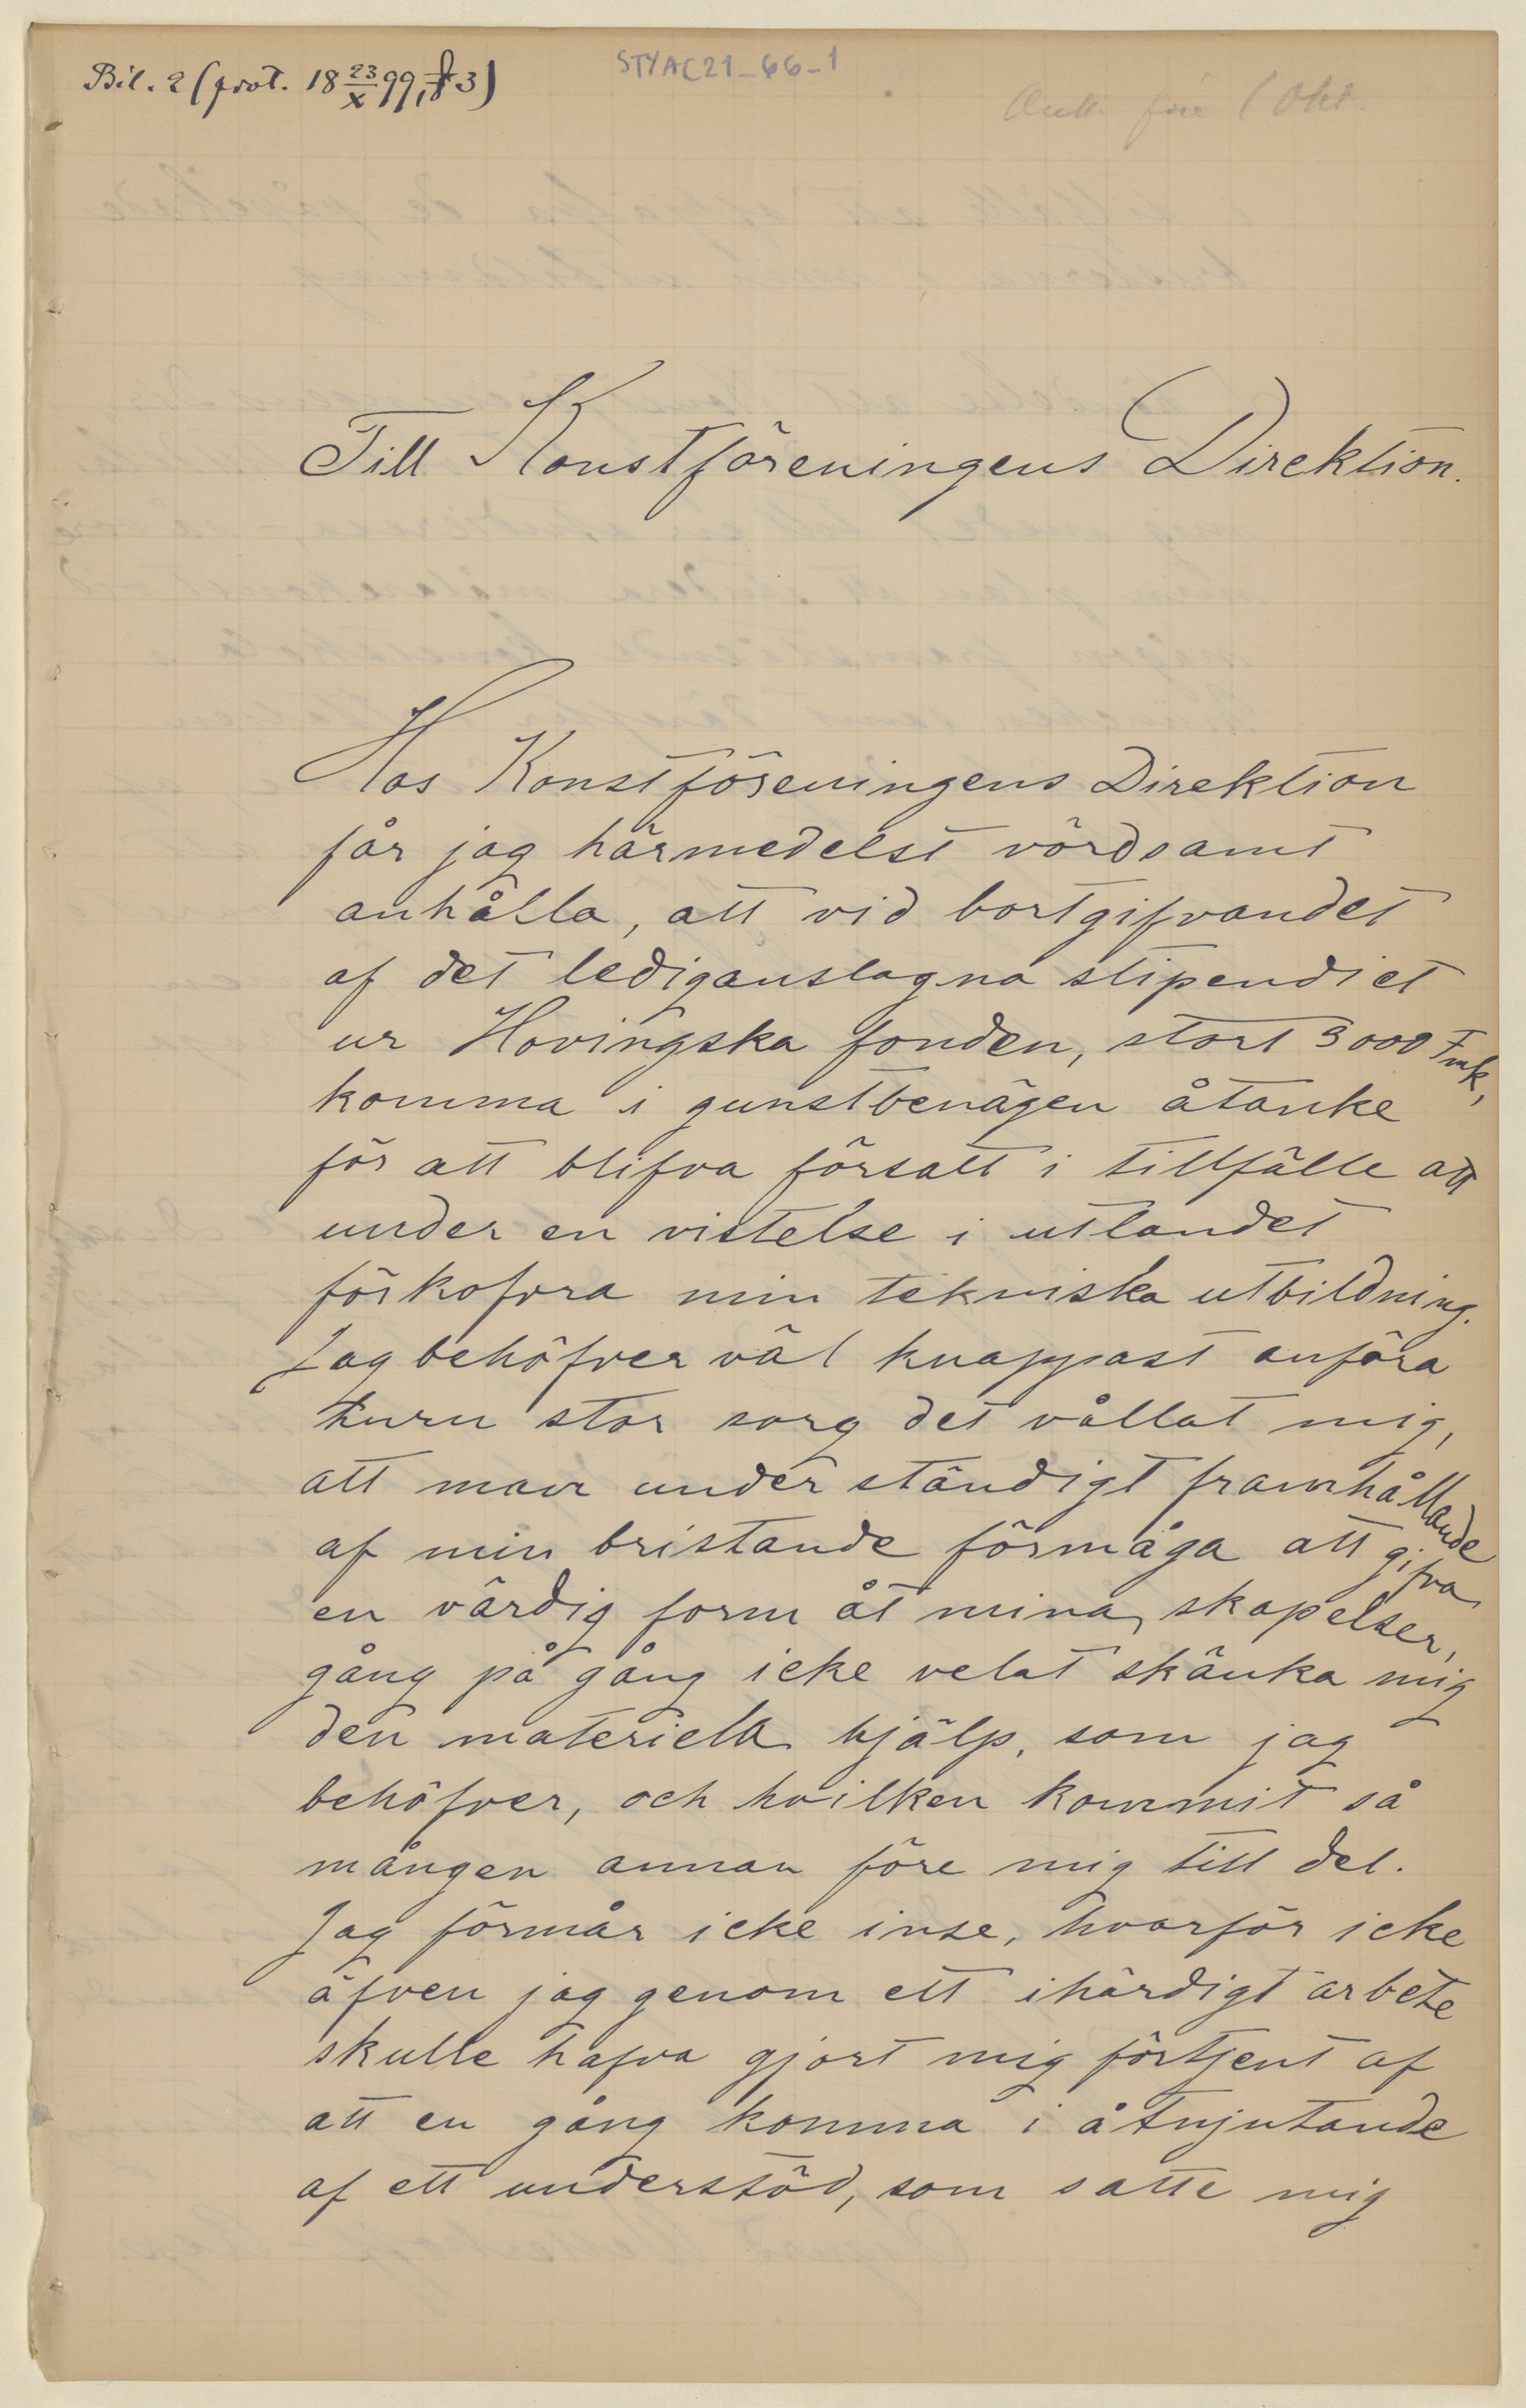 Bil. 2 (prot. 18 23/X 99, § 3)
STYAC21_66_1
före 1 Okt
Till Konstföreningens Direktion.
Hos Konstföreningens Direktion
får jag härmedelst vördsamt
anhålla, att vid bortgifvandet
af det lediganslagna stipendiet
ur Hovingska fonden, stort 3000 Fmk,
komma i gunstbenägen åtanke
för att blifva försatt i tillfälle att
under en vistelse i utlandet
förkofvra min tekniska utbildning.
Jag behöfver väl knappast anföra
huru stor sorg det vållat mig,
att man under ständigt framhållande
af min bristande förmåga att gifva
en värdig form åt mina skapelser,
gång på gång icke velat skänka mig
den materiella hjälp, som jag
behöfver, och hvilken kommit så
mången annan före mig till del.
Jag förmår icke inse, hvarför icke
äfven jag genom ett ihärdigt arbete
skulle hafva gjort mig förtjent af
att en gång komma i åtnjutande
af ett understöd, som satte mig